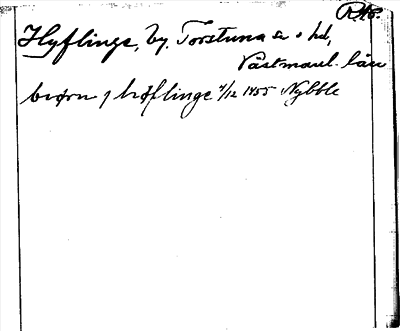 RAp.
Hyflinge, by, Torstuna sn o hd,
Västmanl. län
biørn j høflinge 4/12 1455 Nybble